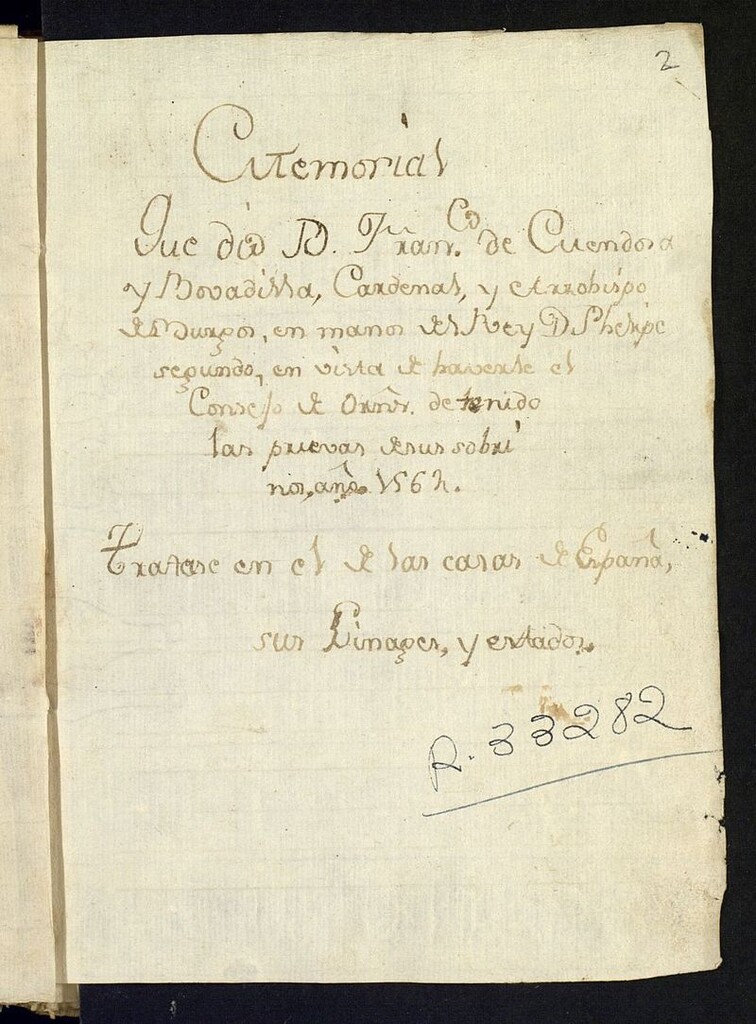 2
Memorial
Que dió D. Fran.co de Mendosa
y Bovadilla, Cardenal, y Arzobispo
de Burgos, en manos del Rey D. Phelipe
segundo, en vista de haverle el
Consejo de Ornes. detenido
las pruevas de sus sobri
nos, año 1562.
Tratase en el de las casas de España,
sus Linages, y estados.
R. 33282